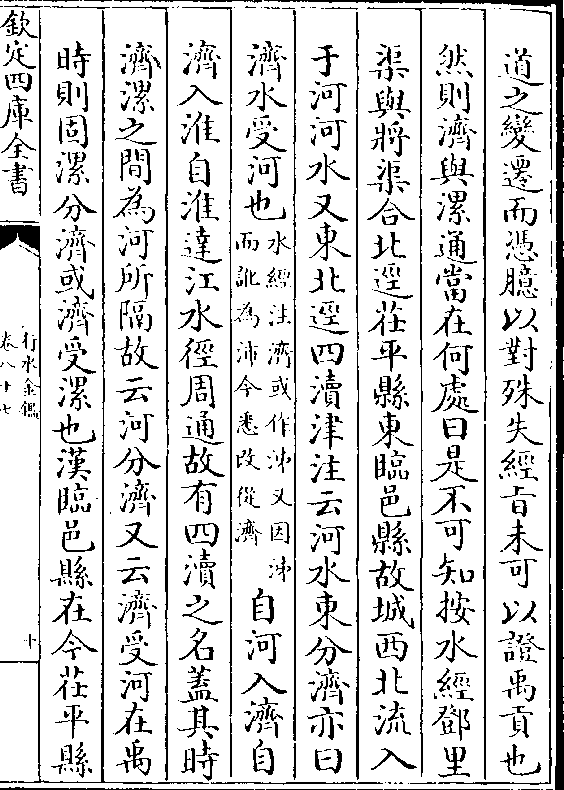 道之變遷而憑臆以對殊失經旨未可以證禹貢也
然則濟與漯通當在何處曰是不可知按水經鄧里
渠與將渠合北逕茌平縣東臨邑縣故城西北流入
于河河水又東北逕四瀆津注云河水東分濟亦曰
濟水受河也水經注濟或作泲又因泲而訛為沛今悉改從濟自河入濟自
濟入淮自淮達江水徑周通故有四瀆之名蓋其時
濟漯之間為河所隔故云河分濟又云濟受河在禹
時則固漯分濟或濟受漯也漢臨邑縣在今茌平縣
欽定四庫全書
行水金鑑
卷八十七
十